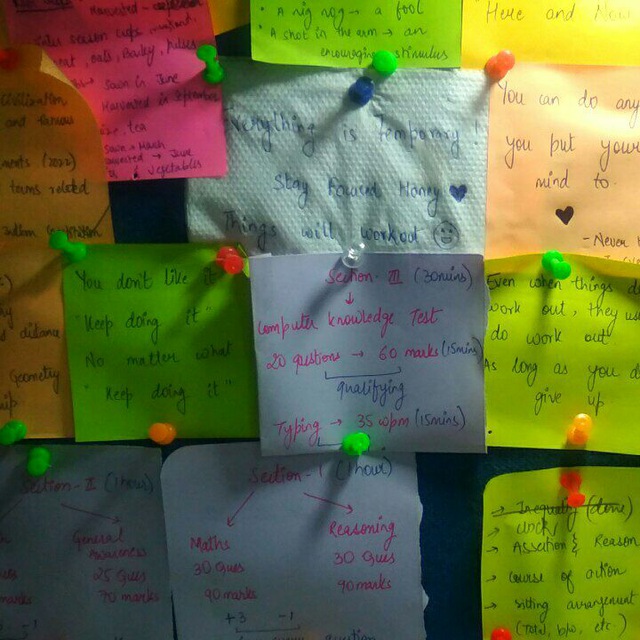 Harvested -
Sown in June
Harvested in September
tea
Sown - March
June
& vegetables
• A rig rog → a fool
• A shot in the arm → an
encouraging stimulus
"Here and Now
Civilization
and Various
(2022)
terms related
Everything is Temporary!
Stay Forward Honey
Things will workout
You can do any
you put your
mind to.
- Never
distance
Geometry
You don't like it
"Keep doing it"
No matter what
"Keep doing it"
Section - III (30mins)
Computer Knowledge Test
20 qustions → 60 marks (15mins)
qualifying
Typing → 35 wpm (15mins)
Even when things do
work out, they us
do work out.
As long as you do
give up
Section - II (1 hour)
General
Awareness
25 Ques
marks
Section - I (1 hour)
Maths
30 Ques
90 marks
+3 -1
Reasoning
30 Ques
90 marks
→ Inequality (done)
→ Clock/
→ Assertion & Reason
→ Course of action
→ Sitting arrangement
etc.)